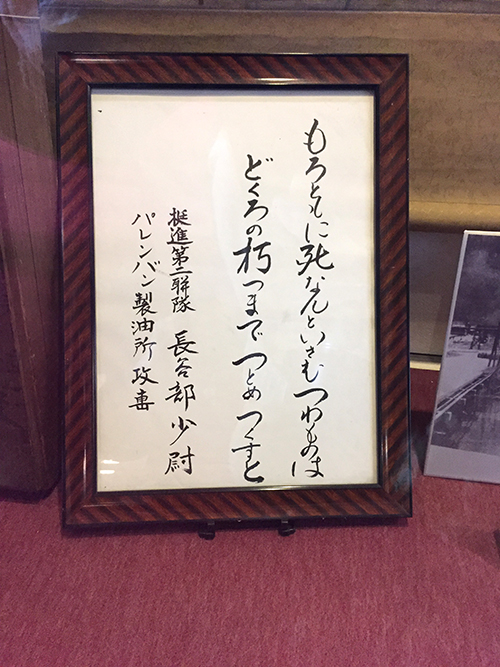 もろともに死なんといさむつわものは
どくろの朽つまでつとめつくすと
挺進第二聯隊 長谷部少尉
パレンバン製油所攻撃